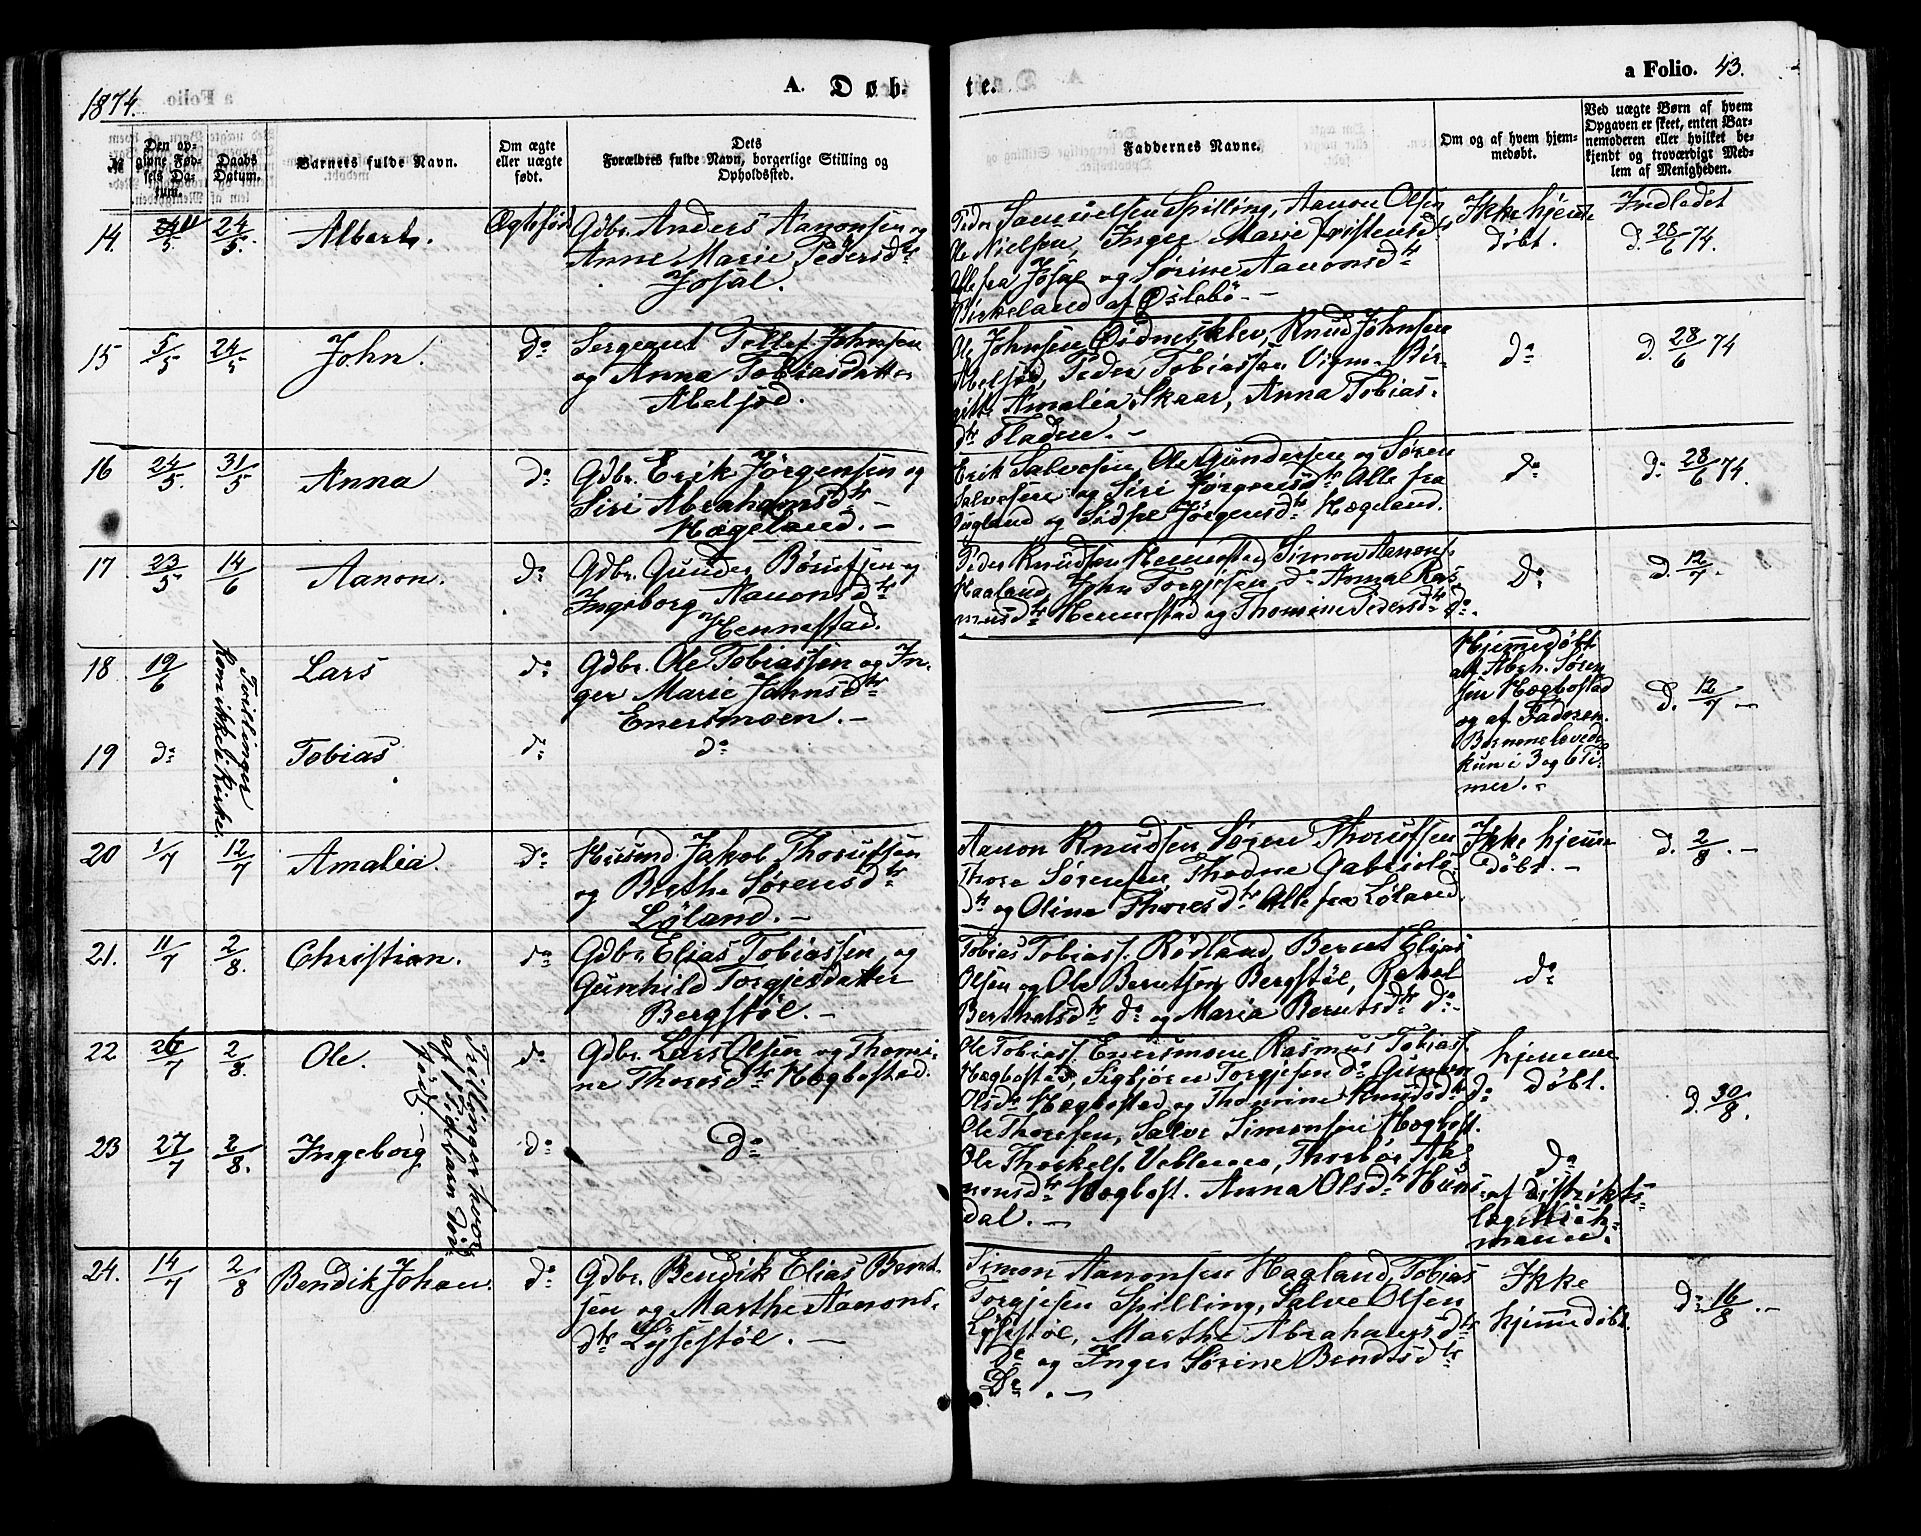 1874.
A. Døb-
te.
a Folio. 43.
№
Den op-
givne Fød-
sels Da-
tum.
Daabs
Datum.
Barnets fulde Navn.
Om ægte
eller uægte
født.
Dets
Forældres fulde Navn, borgerlige Stilling og
Opholdssted.
Faddernes Navne.
Om og af hvem hjem-
medøbt.
Ved uægte Børn af hvem
Opgaven er skeet, enten Bar-
nemoderen eller hvilket be-
kjendt og troværdigt Med-
lem af Menigheden.
14.
24/5.
Albert.
Ægtefød
Gdbr. Anders Aanonsen og
Anne Marie Pedersdtr
Josal.
Peder Samuelsen Spilling, Aanon Olsen
Ole Nielsen, Inger Marie
Alle fra Josal og Sørine Aanonsdtr
Birkeland af Øslebö. -
Ikke hjemme
døbt.
Indledet
d. 28/6 74.
15
5/5
24/5
John.
do
Sergeant Tellef Johnsen
og Anna Tobiasdatter
Abelsød.
Ole Johnsen Ødneskley, Knud Johnsen
Abelsød, Peder Tobiassen Vigm. Bir-
gitte Amalia Skaar, Anna Tobias-
dtr Fladen. -
do
d. 28/6 74
16
24/5.
31/5
Anna
do
Gdbr. Erik Jörgensen og
Siri Abrahamsdtr -
Hægeland. -
Erik Salvesen, Ole Gundersen og Søren
Salvesen og Siri Jörgensdtr Alle fra
og Jörgensdtr Hægeland.
do
d. 28/6 74.
17
23/5
14/6
Aanon.
do
Gdbr. Gunder Börufsen og
Ingeborg Aanonsdtr
Hennestad.
Peder Knudsen Hennestad, Simon Aanons.
Haaland, John Torgjesen do Anna Ras-
musdtr Hennestad og Thomine Pedersdtr do.
do
d. 12/7.
18
19/6
Tvillinger
kom ikke i kirke.
Lars
do
Gdbr. Ole Tobiassen og In-
ger Marie Jahnsdtr
Enersmoen. -
Hjemmedøbt
af Abrh. Søren-
sen Hægbostad
og af Faderen.
Børnene levede
kun i 3 og 6 Ti-
mer. -
d. 12/7 -
19
do
Tobias
do
do
20
1/7
12/7
Amalia.
do
Husmd. Jakob Thorufsen
og Berthe Sørensdtr
Løland. -
Aanon Knudsen, Søren Thorufsen
Thore Sørensen, Thodne Gabriels-
dtr og Olina Thoresdtr Alle fra Løland.
Ikke hjemme
døbt. -
d. 2/8. -
21.
11/7
2/8.
Christian.
do
Gdbr. Elias Tobiassen og
Gunhild Torgjesdatter
Bergstøl. -
Tobias Tobiass. Rødland, Bernt Elias
Olsen og Ole Berntsen Bergstøl, Rakel
Berthelsdtr do og Maria Berntsdtr do -
do
22
26/7
2/8.
Ole.
do
Gdbr. Lars Olsen og Thomi-
ne Thoresdtr Hægbostad.
Trillinger hvor-
af 1 Pigebarn død-
født. -
Ole Tobiass. Enersmoen, Rasmus Tobiass.
Hægbostad, Sigbjörn Torgjesen do Gunvor
Olsdtr Hægbostad og Thomine Knudsdtr do
hjemme
døbt.
d. 30/8.
23
27/7
2/8.
Ingeborg
do
Do
Ole Thoresen, Salve Simonsen Hægbost.
Ole Thorkels. Thorbör Aa-
nonsdtr Hægbost. Anna Olsdtr Huns-
dal. -
do
af Distrikts-
læge Wiek-
mann.
24.
14/7
2/8
Bendik Johan.
do
Gdbr. Bendik Elias Bent-
sen og Marthe Aanons-
dtr Lyssestøl. -
Simon Aanonsen Haaland, Tobias
Torgjesen Spilling, Salve Olsen
Lyssestøl, Marthe Abrahamsdtr
do og Inger Sørine Bendtsdtr
Do. -
Ikke
hjemmedøbt.
d. 16/8. -